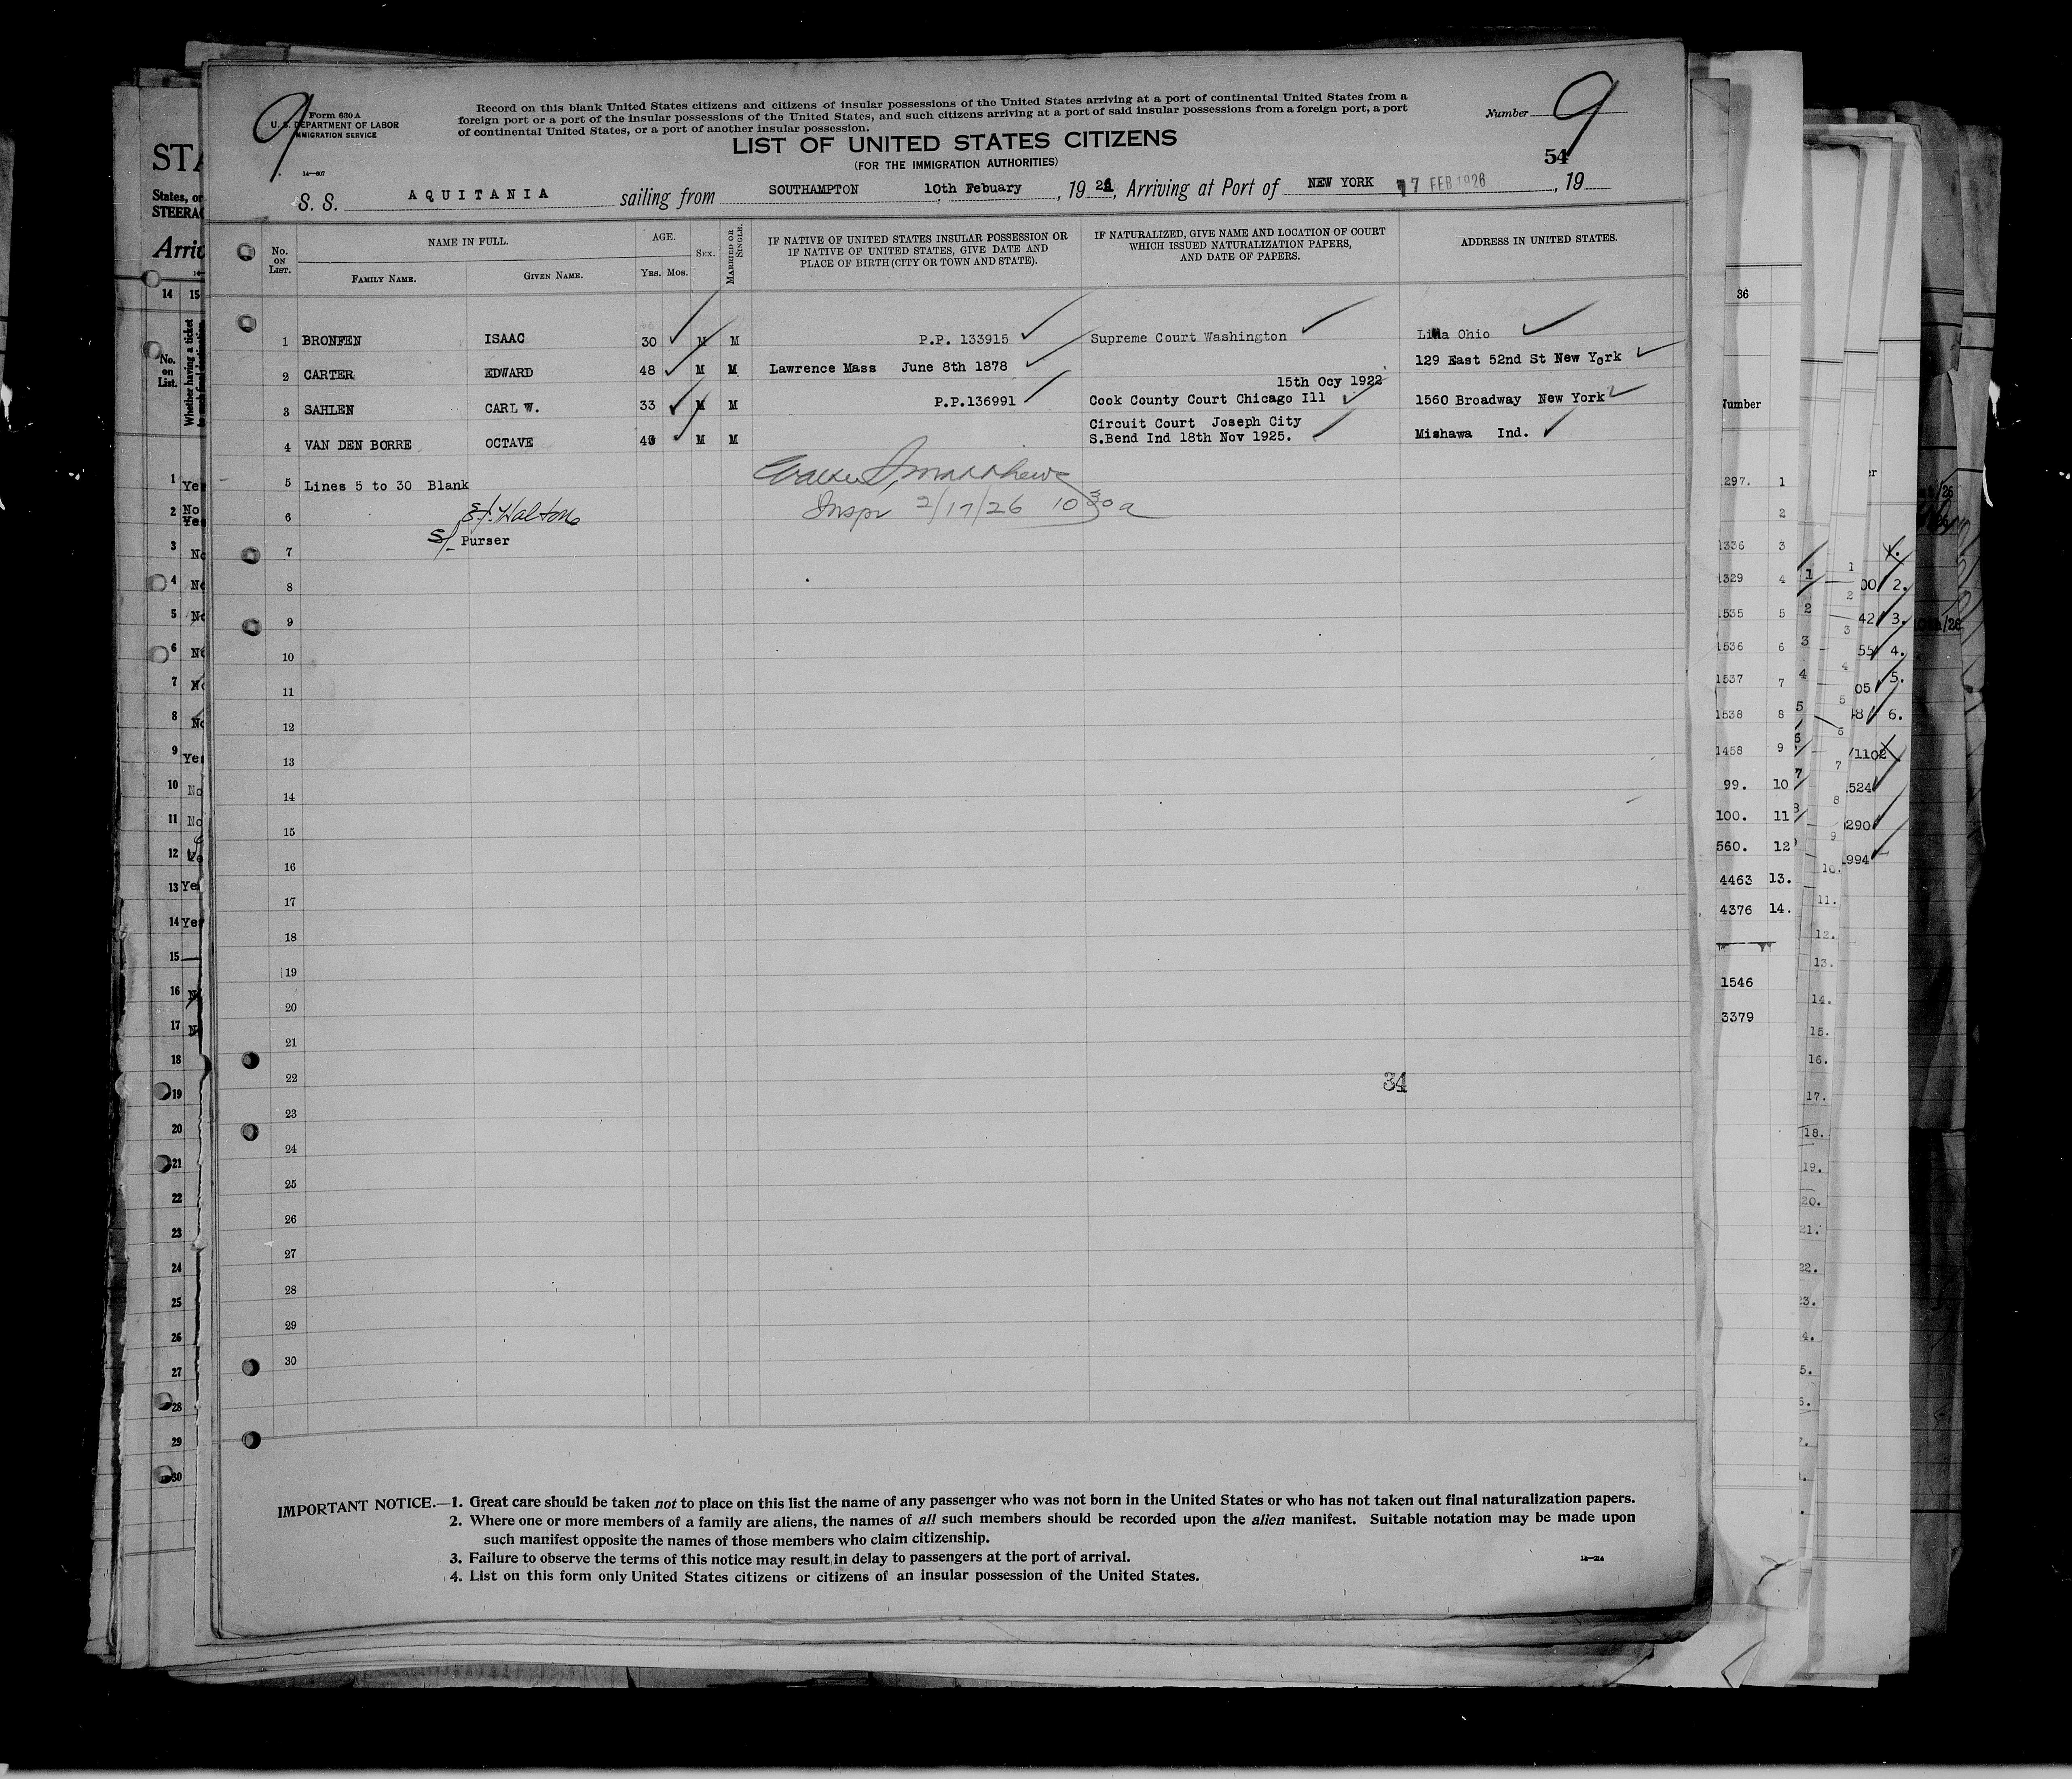 9
Form 630 A
U. S. DEPARTMENT OF LABOR
IMMIGRATION SERVICE
14—607
Record on this blank United States citizens and citizens of insular possessions of the United States arriving at a port of continental United States from a
foreign port or a port of the insular possessions of the United States, and such citizens arriving at a port of said insular possessions from a foreign port, a port
of continental United States, or a port of another insular possession.
Number 9
LIST OF UNITED STATES CITIZENS
(FOR THE IMMIGRATION AUTHORITIES)
54
S. S. AQUITANIA sailing from SOUTHAMPTON, 10th Febuary, 1926, Arriving at Port of NEW YORK 17 FEB 1926, 19
No. ON LIST. NAME IN FULL. FAMILY NAME. GIVEN NAME. AGE. YRS. MOS. SEX. MARRIED OR SINGLE. IF NATIVE OF UNITED STATES INSULAR POSSESSION OR IF NATIVE OF UNITED STATES, GIVE DATE AND PLACE OF BIRTH (CITY OR TOWN AND STATE). IF NATURALIZED, GIVE NAME AND LOCATION OF COURT WHICH ISSUED NATURALIZATION PAPERS, AND DATE OF PAPERS. ADDRESS IN UNITED STATES.
1 BRONFEN ISAAC 30 M M P.P. 133915 Supreme Court Washington Lima Ohio
2 CARTER EDWARD 48 M M Lawrence Mass June 8th 1878 129 East 52nd St New York
15th Ocy 1922
3 SAHLEN CARL W. 33 M M P.P.136991 Cook County Court Chicago Ill 1560 Broadway New York
Circuit Court Joseph City
4 VAN DEN BORRE OCTAVE M M S.Bend Ind 18th Nov 1925. Mishawa Ind.
5 Lines 5 to 30 Blank
6 Inspr 2/17/26 10 30 a
7 S/ Purser
8
9
10
11
12
13
14
15
16
17
18
19
20
21
22 34
23
24
25
26
27
28
29
30
IMPORTANT NOTICE.—1. Great care should be taken not to place on this list the name of any passenger who was not born in the United States or who has not taken out final naturalization papers.
2. Where one or more members of a family are aliens, the names of all such members should be recorded upon the alien manifest. Suitable notation may be made upon
such manifest opposite the names of those members who claim citizenship.
3. Failure to observe the terms of this notice may result in delay to passengers at the port of arrival.
4. List on this form only United States citizens or citizens of an insular possession of the United States.